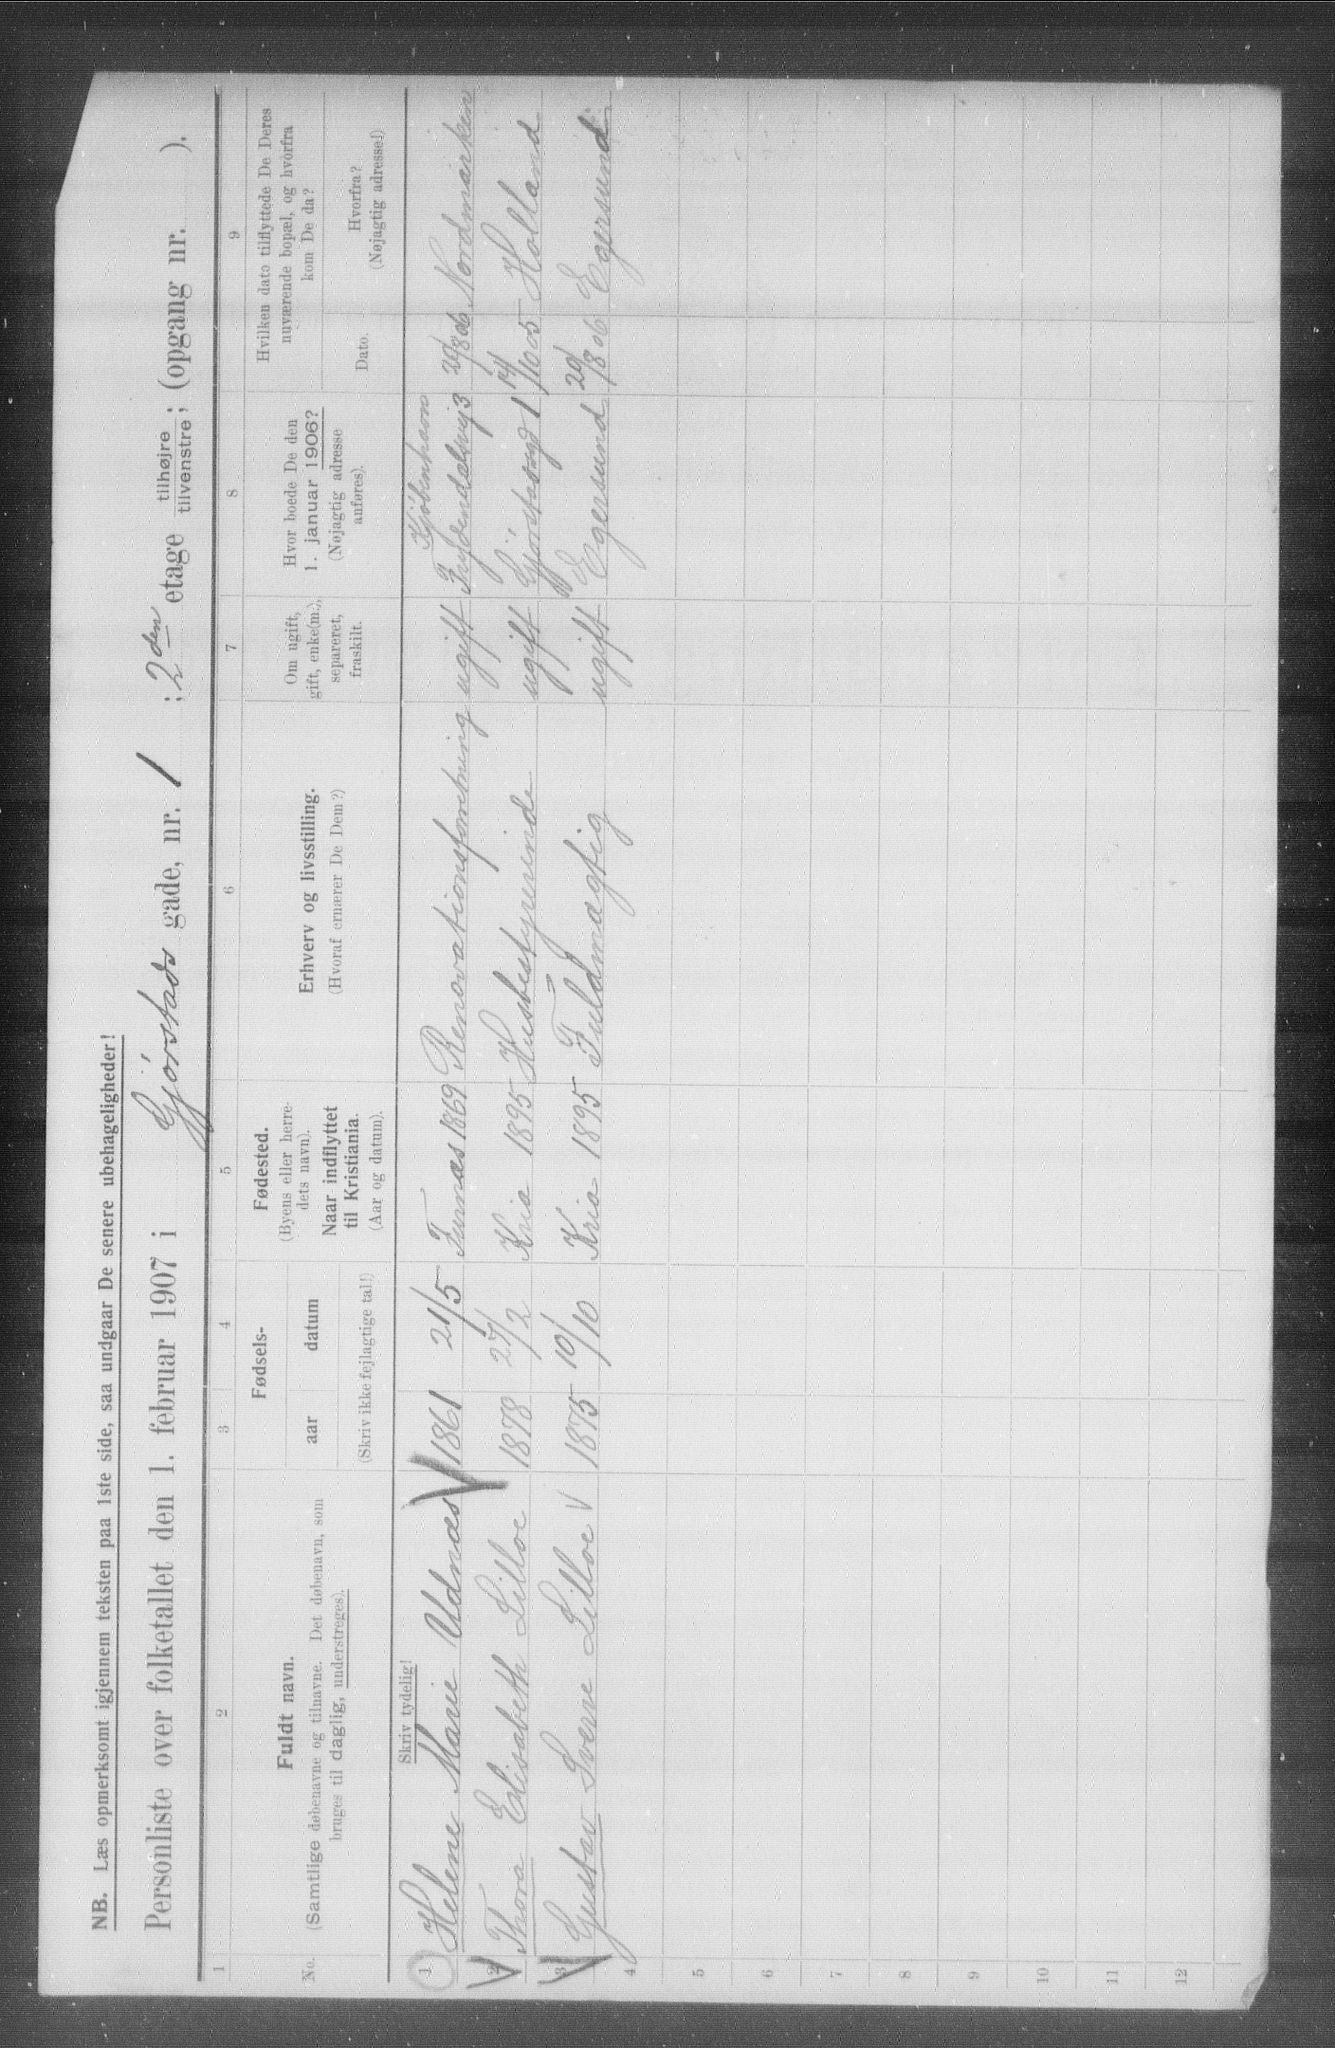 NB. Læs opmerksomt igjennem teksten paa 1ste side, saa undgaar De senere ubehageligheder!
Personliste over folketallet den 1. februar 1907 i Gjørstads gade, nr. 1 ; 2den etage tilhøjre tilvenstre; (opgang nr. ).
1 2 3 4 5 6 7 8 9
No. Fuldt navn. (Samtlige døbenavne og tilnavne. Det døbenavn, som bruges til daglig, understreges).
Fødsels- aar datum (Skriv ikke fejlagtige tal!)
Fødested. (Byens eller herredets navn). Naar indflyttet til Kristiania. (Aar og datum).
Erhverv og livsstilling. (Hvoraf ernærer De Dem?)
Om ugift, gift, enke(m.), separeret, fraskilt.
Hvor boede De den 1. januar 1906? (Nøjagtig adresse anføres).
Hvilken dato tilflyttede De Deres nuværende bopæl, og hvorfra kom De da?
Dato. Hvorfra? (Nøjagtig adresse!)
Skriv tydelig!
1 Helene Marie Udnæs 1861 21/5 Furnæs 1869 Renovationsforretning ugift Kjøbenhavn 3 Nordmarken
2 Thora Elisabeth Lilloe 1878 27/2 Kria 1895 Husbestyrerinde ugift Gjørstadsgd 1 14/10 05 Holland
3 Gustav Sverre Lilloe 1875 10/10 Kria 1895 Fuldmægtig ugift Egersund 20/8 06 Egersund
4
5
6
7
8
9
10
11
12